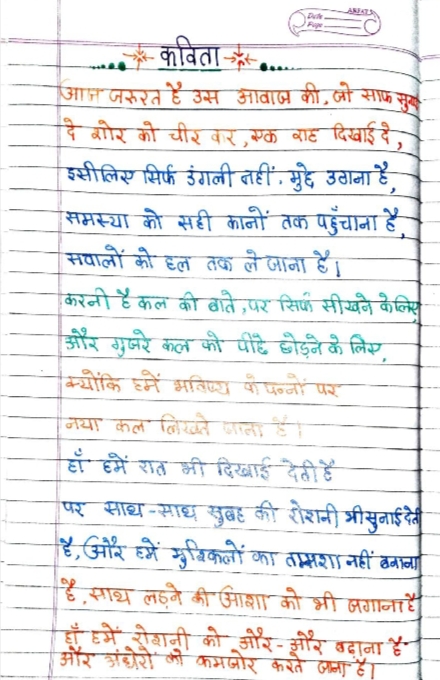 ARPAN
Date
Page
कविता
आज जरूरत है उस आवाज की, जो साफ सुना
दे शोर को चीर कर, एक राह दिखाई दे,
इसीलिए सिर्फ उंगली नहीं, मुद्दे उठाना है,
समस्या को सही कानों तक पहुँचाना है,
सवालों को हल तक ले जाना है।
करनी है कल की बाते, पर सिर्फ सीखने के लिए
और गुजरे कल को पीछे छोड़ने के लिए,
क्योंकि हमें भविष्य के पन्नों पर
नया कल लिखते जाना है।
हाँ हमें रात भी दिखाई देती है
पर साथ-साथ सुबह की रोशनी भी सुनाई देती
है, और हमें मुश्किलों का तामशा नहीं बनाना
है, साथ लड़ने की आशा को भी जगाना है
हाँ हमें रोशनी को और-और बढ़ाना है
और अंधेरों को कमजोर करते जाना है।